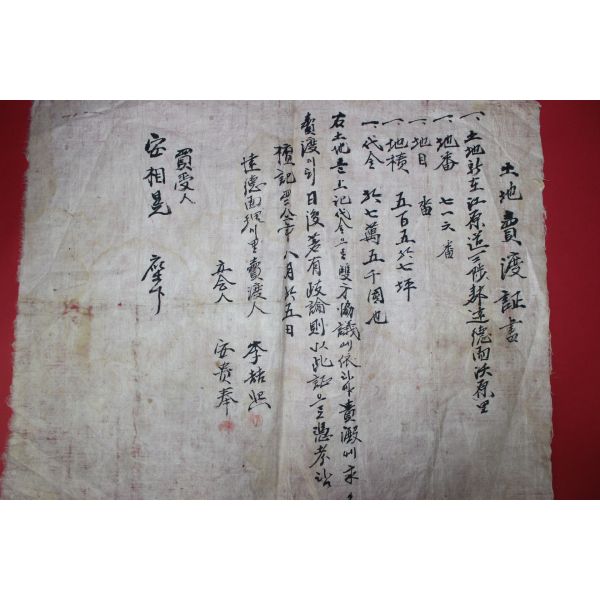 土地賣渡証書
一、土地所在江原道三陟郡遠德面沃原里
一、地番 七一六番
一、地目 畓
一、地積 五百五拾七坪
一、代金 拾七萬五千圜也
右土地를上記代金으로雙方協議에依하야賣渡
賣渡이되日後若有政論則以此証으로憑考
檀記四二八 年八月拾五日
遠德面 里賣渡人 李喆熙
立會人 安貴奉
買受人
安相晃 座下